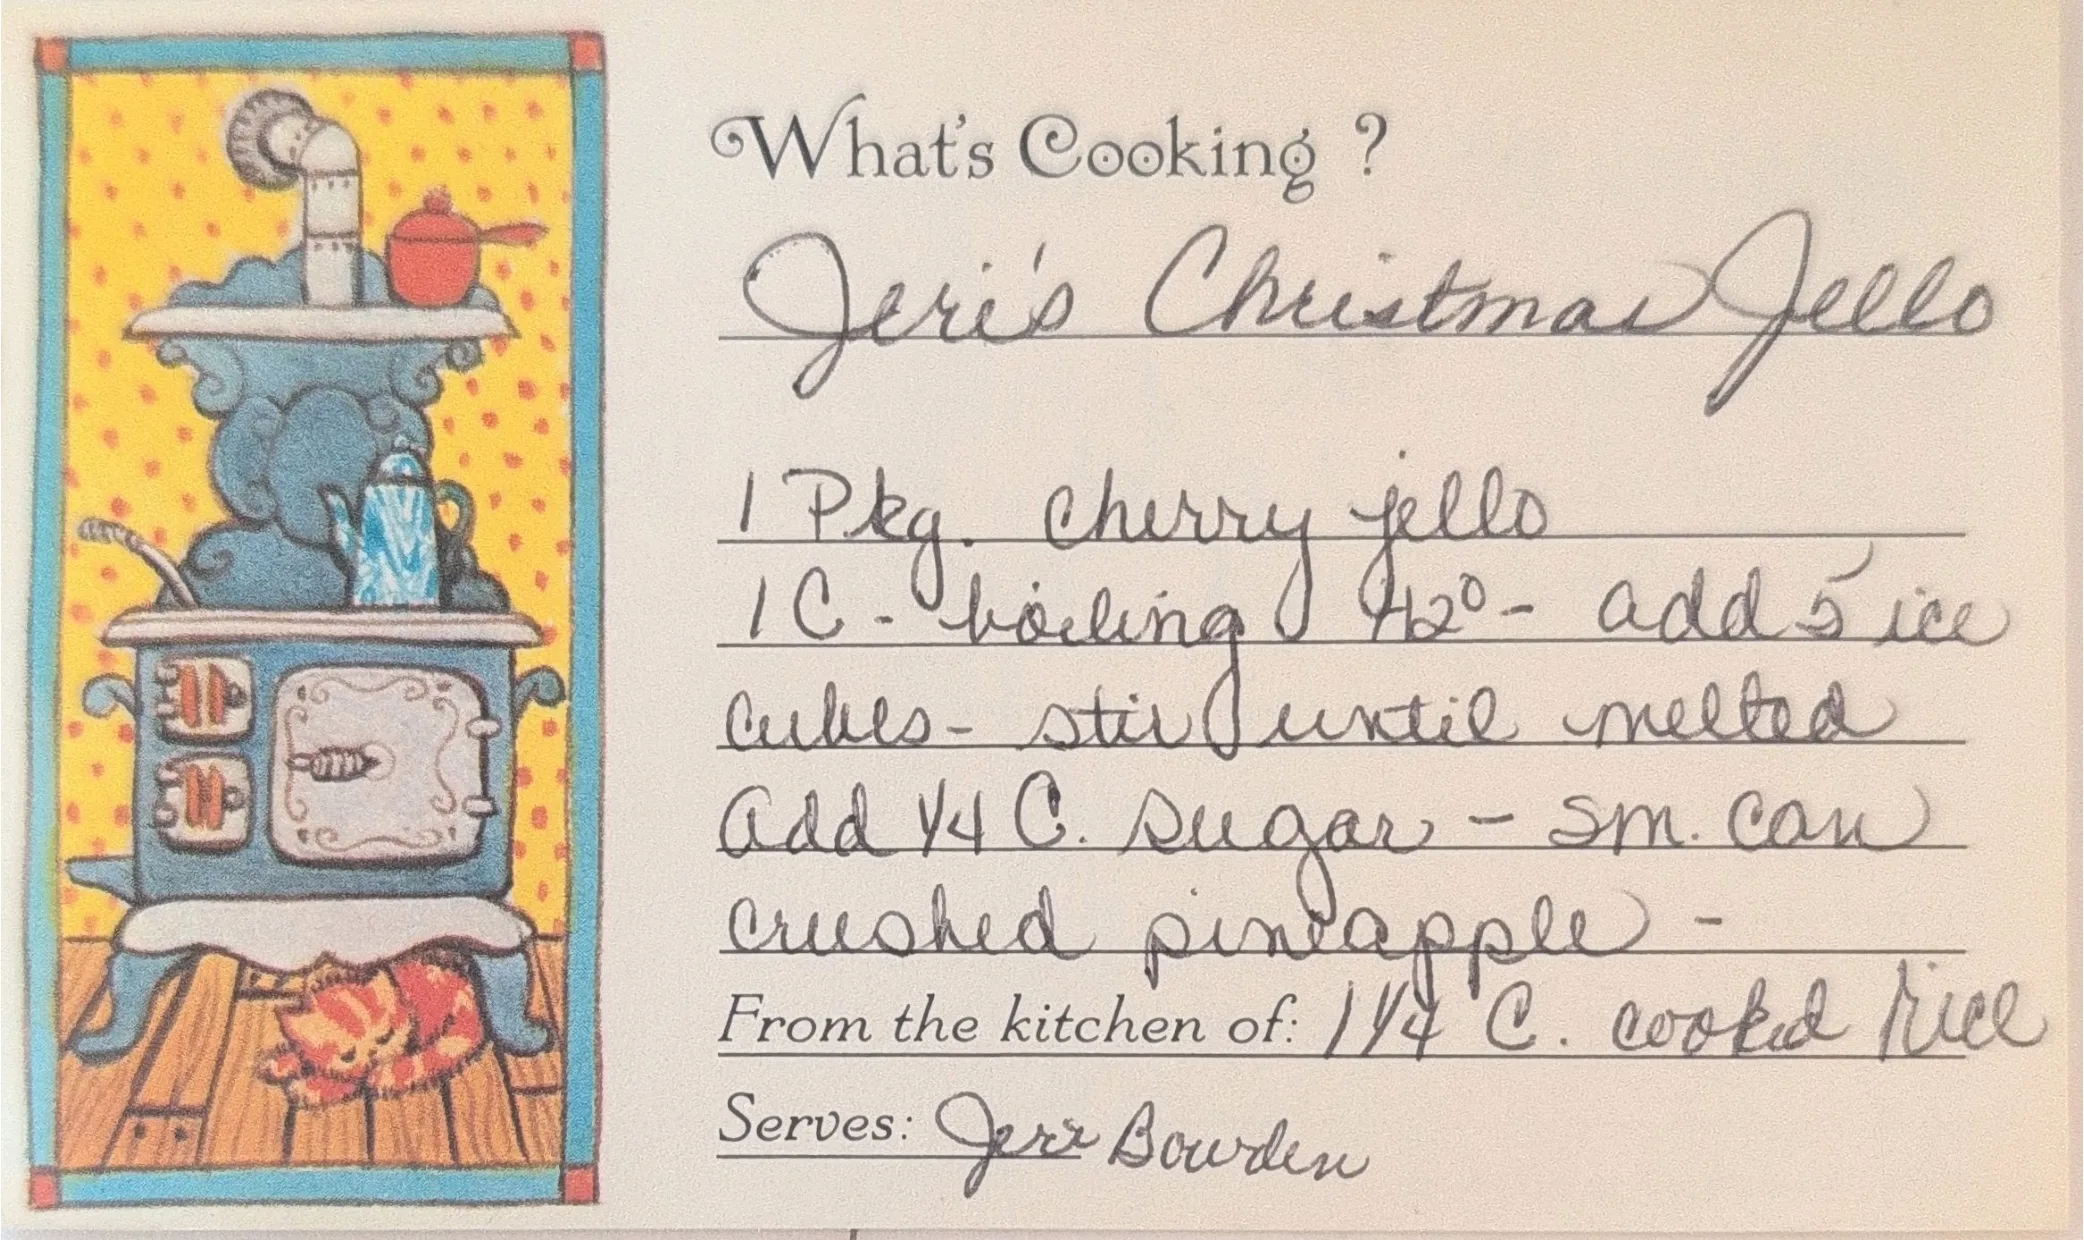 What's Cooking ?
Jeri's Christmas Jello
1 Pkg. cherry jello
1 C - boiling H2O - add 5 ice
cubes - stir until melted
add 1/4 C. sugar - sm. can
crushed pineapple -
From the kitchen of: 1 1/4 C. cooked rice
Serves: Jeri Bowden